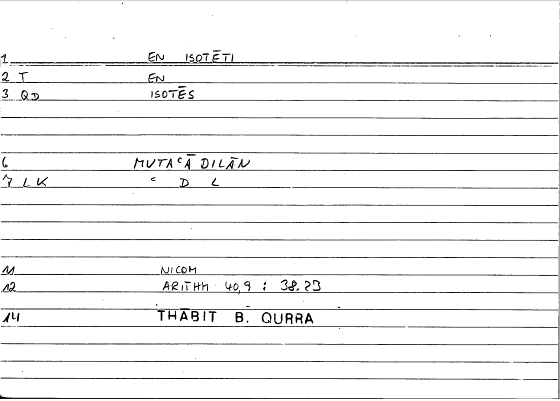 1 EN ISOTĒTI
2 T EN
3 QD ISOTĒS
6 MUTAʿĀDILĀN
7 LK ʿ D L
11 NICOM
12 ARITHM 40,9 : 38.23
14 THĀBIT B. QURRA